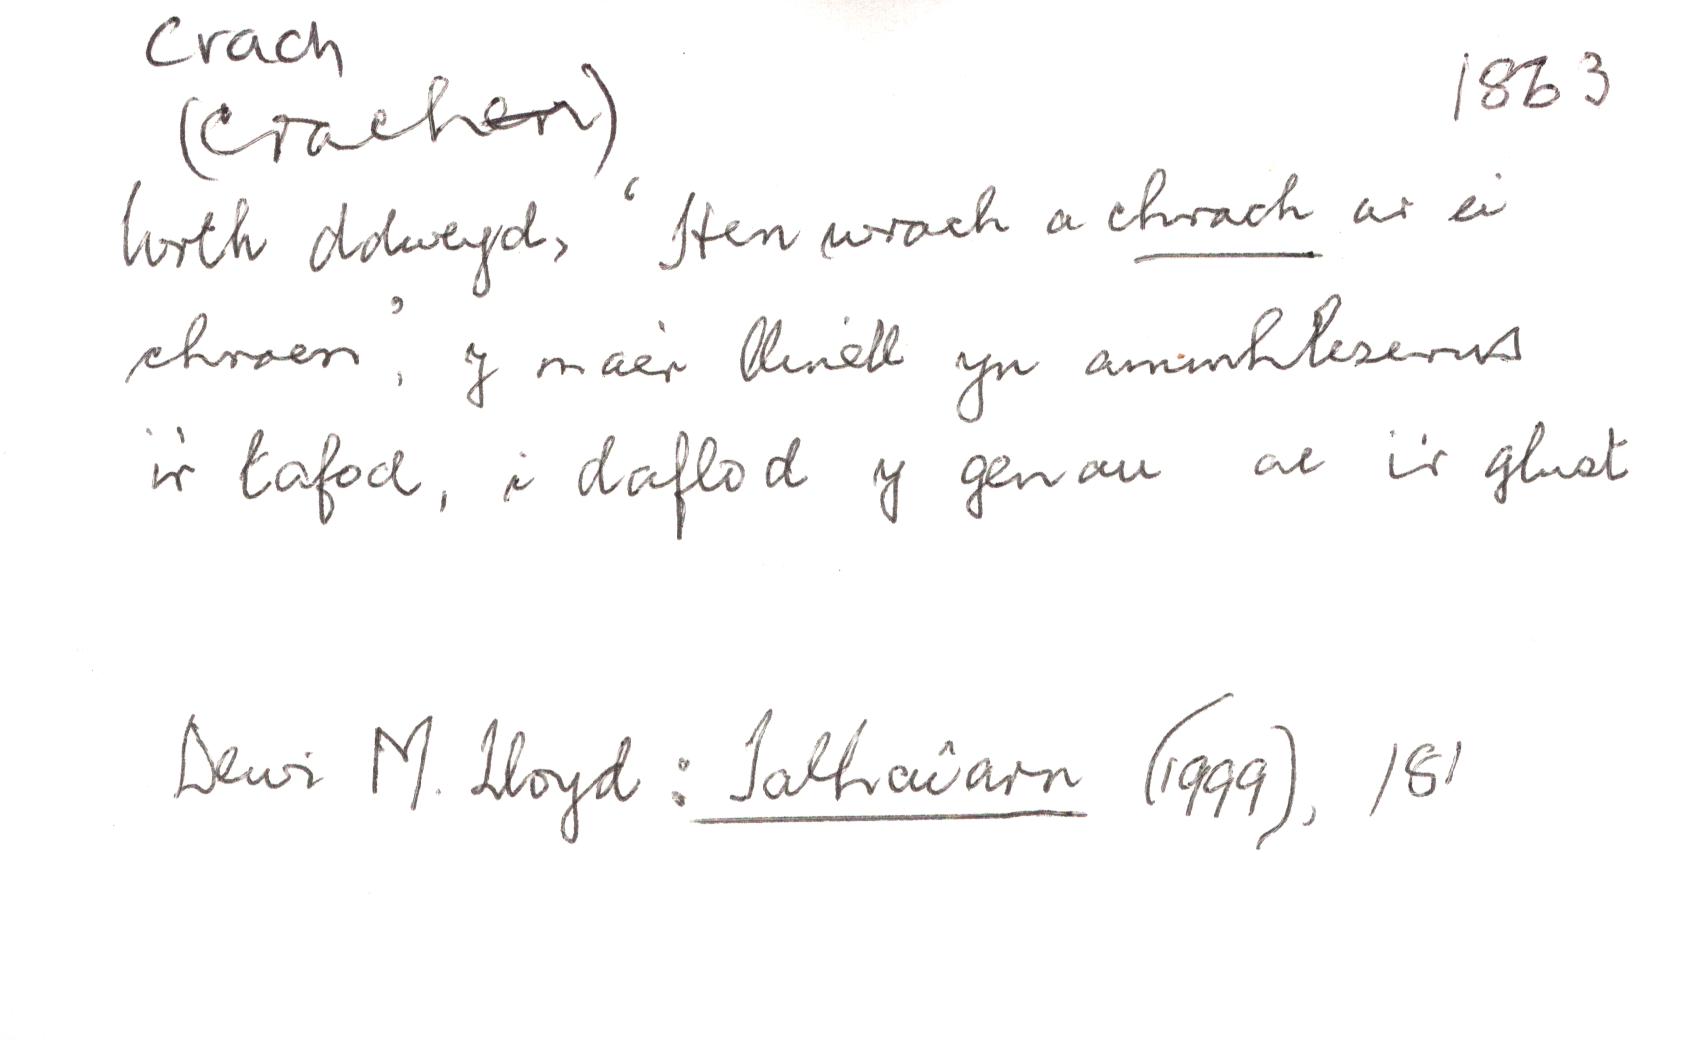 Crach
1863
(crachen)
Wrth ddweyd, ‘Hen wrach a chrach ar ei
chroen’, y mae'r llinell yn ammhleserus
i'r tafod, i daflod y genau ac i'r glust
Dewi M. Lloyd: Talhaiarn (1999), 181